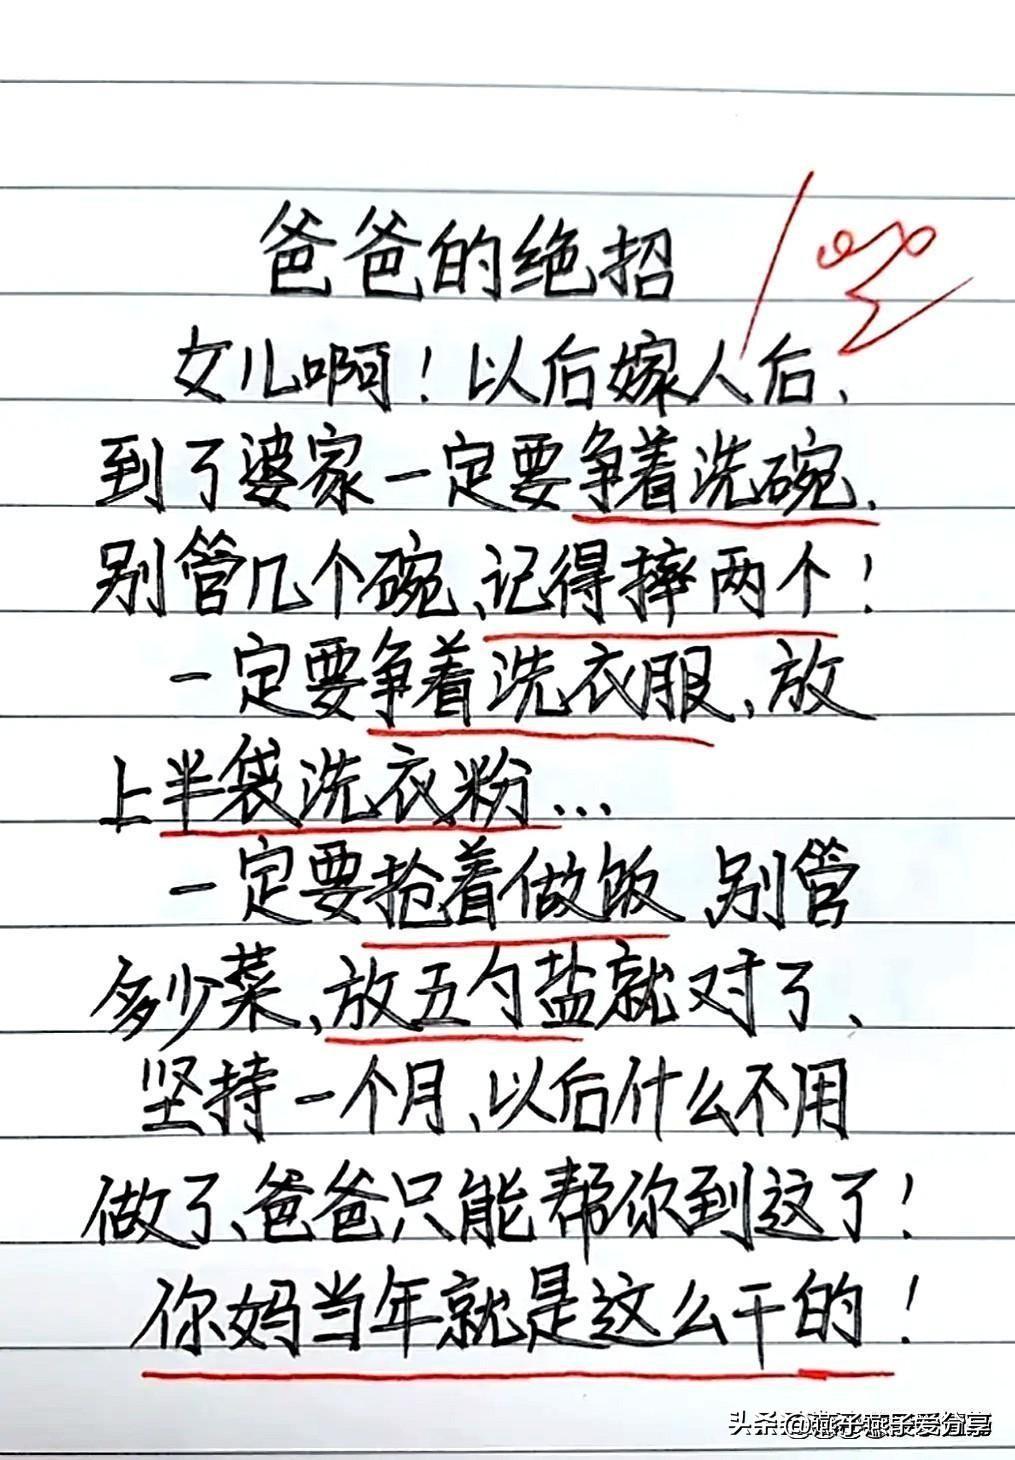 爸爸的绝招
女儿啊！以后嫁人后、
到了婆家一定要争着洗碗、
别管几个碗、记得摔两个！
一定要争着洗衣服、放
上半袋洗衣粉...
一定要抢着做饭 别管
多少菜、放五勺盐就对了、
坚持一个月、以后什么不用
做了、爸爸只能帮你到这了！
你妈当年就是这么干的！
头条 @燕子燕子爱分享